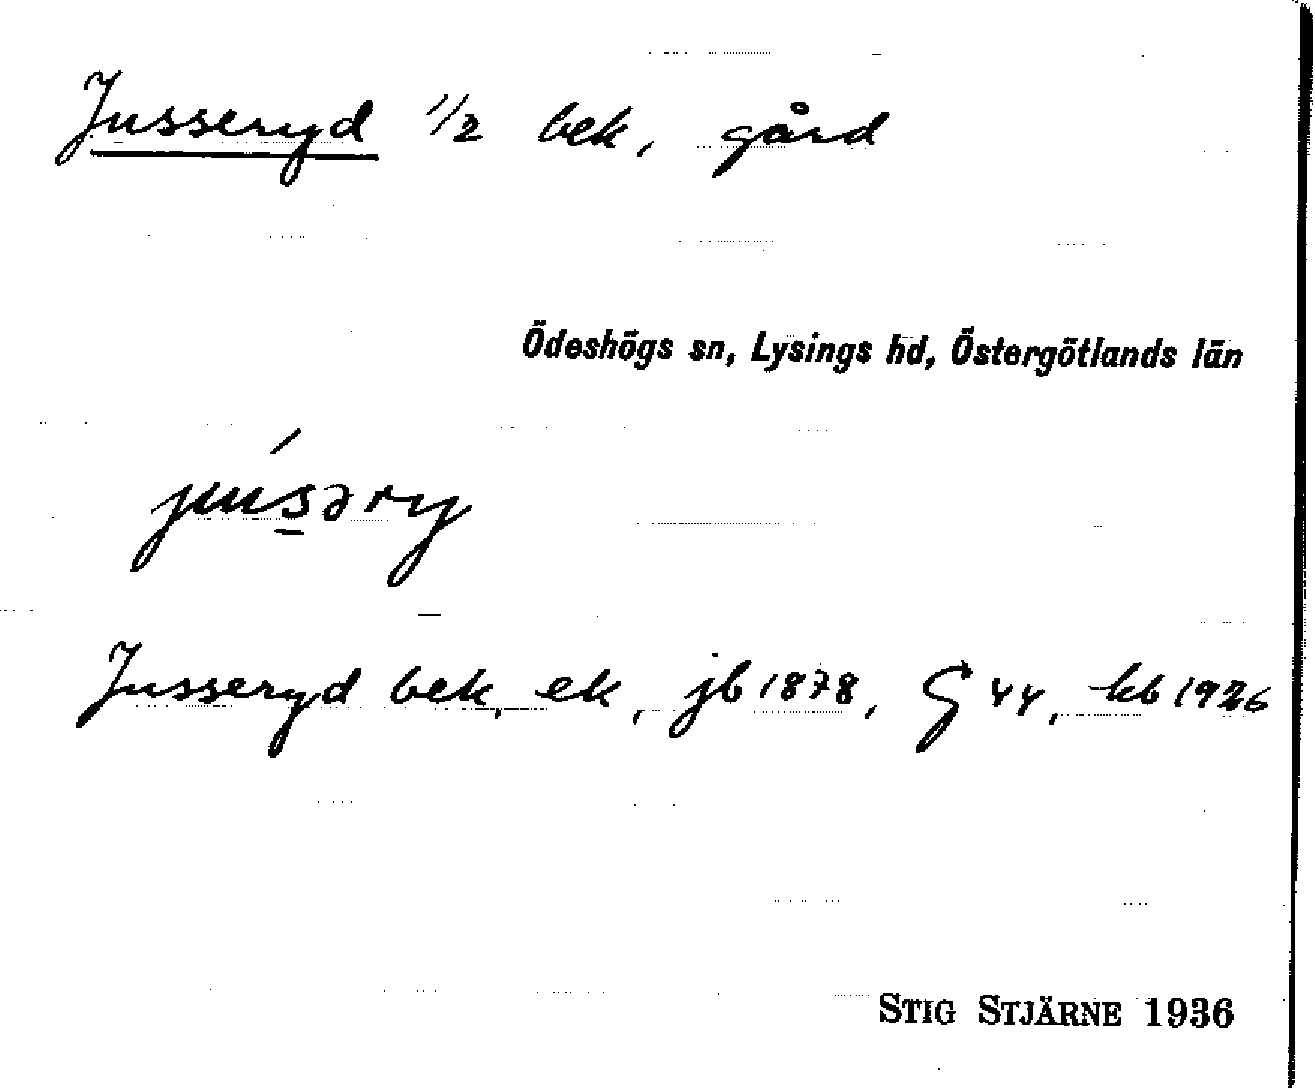 Jusseryd 1/2 bek, gård
Ödeshögs sn, Lysings hd, Östergötlands län
júsəry
Jusseryd bek, ek, jb 1878, G 44, kb 1926
STIG STJÄRNE 1936